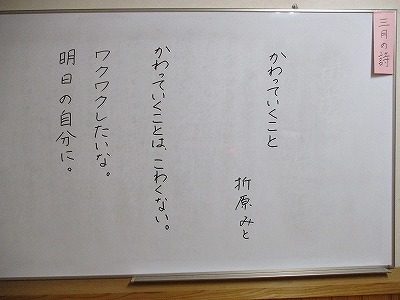 三月の詩
かわっていくこと
折原みと
かわっていくことは、こわくない。
ワクワクしたいな。
明日の自分に。